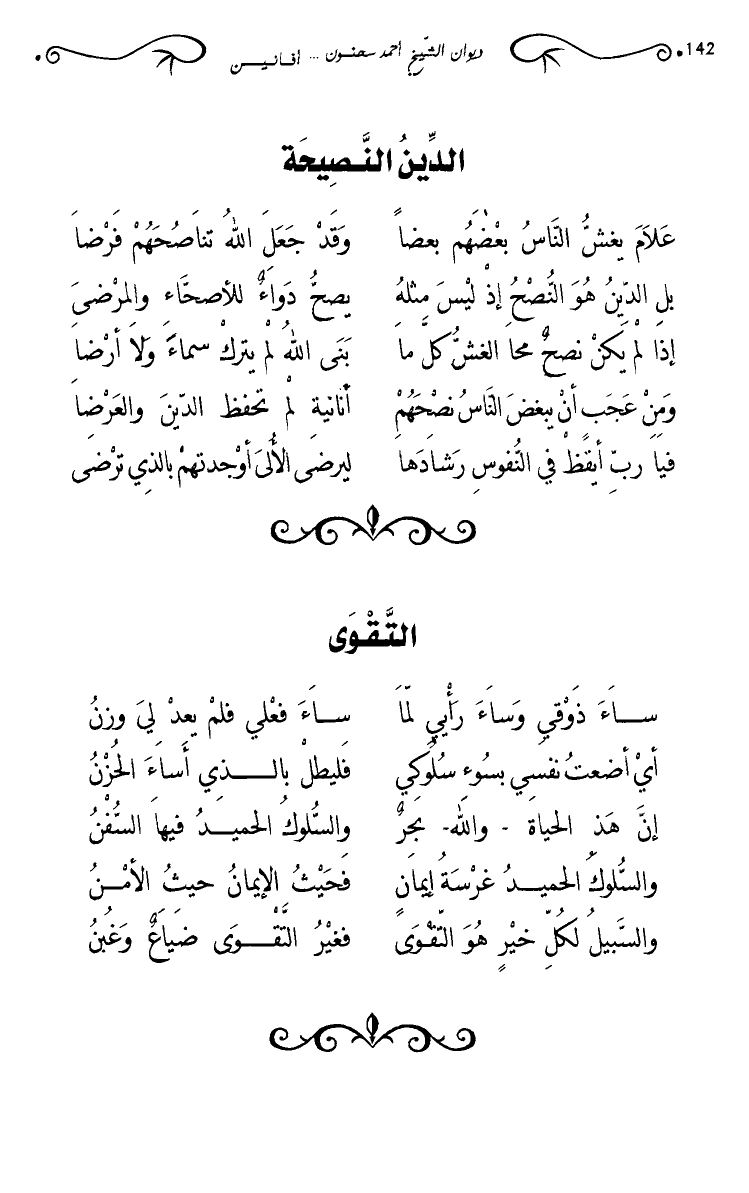 142 ديوان الشّيخ احمد سحنون ... افانيـن
الدِّينُ النَّـصِيحَة
عَلاَمَ يغشُّ النَّاسُ بعْضُهُم بعضاً وَقَدْ جَعَلَ اللهُ تناصُحَهُمْ فَرْضا
بلِ الدّينُ هُوَ النُّصْحُ إذْ ليْسَ مِثلهُ يصحُّ دَواءٌ للأصحَّاءِ والمرْضىَ
إذا لمْ يكنْ نصحٌ محا الغشُّ كلَّ ما بَنَى اللهُ لمْ يتركْ سماءً وَلاَ أرْضا
وَمِنْ عَجَب أنْ يبغضَ النَّاسُ نصْحَهُمْ أنانية لمْ تحفظ الدّينَ والعَرْضا
فيا ربِّ أيقظْ في النُّفوسِ رَشادَها ليرضى الأُلىَ أوْجدتهمْ بالذِي ترْضى
التَّـقْـوَى
ســاءَ ذَوْقي وَساءَ رَأْيي لمّا ســاءَ فعْلي فلمْ يعدْ ليَ وزنُ
أيْ أضعتُ نفسِي بسُوءِ سُلُوكِي فَليطلْ بالــذِي أَساءَ الحُزْنُ
إنَّ هَذِ الحياة - والله- بحرٌ والسُّلوكُ الحميــدُ فيها السُّفْنُ
والسُّلوكُ الحميــدُ غرْسَةُ إيمَانٍ فَحَيْثُ الإيمانُ حيثُ الأمْـنُ
والسَّبيلُ لكُلِّ خيْرٍ هُوَ التّقْوَى فغيْرُ التَّقْــوَى ضيَاعٌ وَغبْنُ